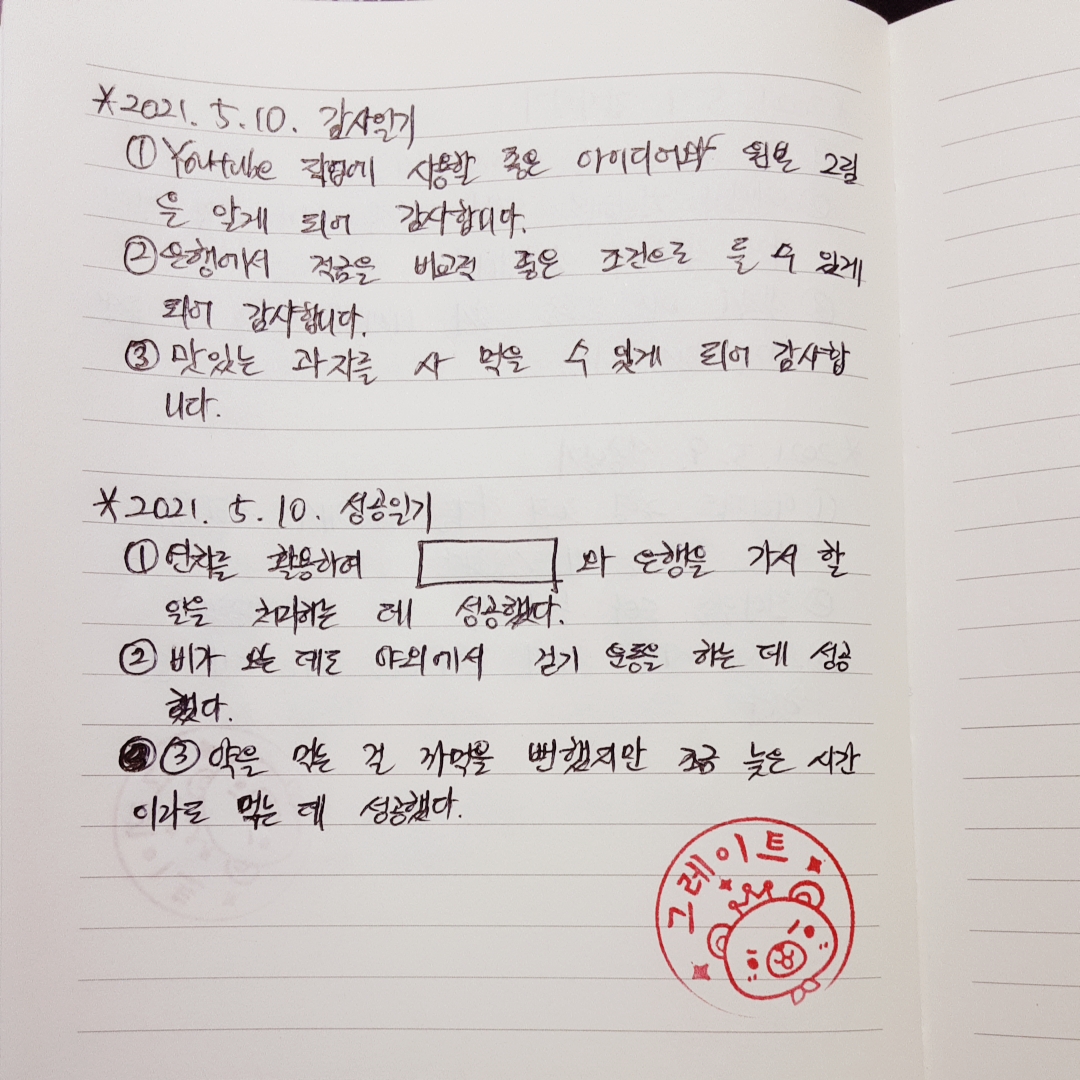 *2021. 5. 10. 감사일기
① Youtube 작업에 사용할 좋은 아이디어와 원본 그림
을 알게 되어 감사합니다.
② 은행에서 적금을 비교적 좋은 조건으로 들 수 있게
되어 감사합니다.
③ 맛있는 과자를 사 먹을 수 있게 되어 감사합
니다.
*2021. 5. 10. 성공일기
① 연차를 활용하여 와 은행을 가서 할
일을 처리하는 데 성공했다.
② 비가 오는 데도 야외에서 걷기 운동을 하는 데 성공
했다.
③ 약을 먹는 걸 까먹을 뻔했지만 조금 늦은 시간
이라도 먹는 데 성공했다.
그레이트